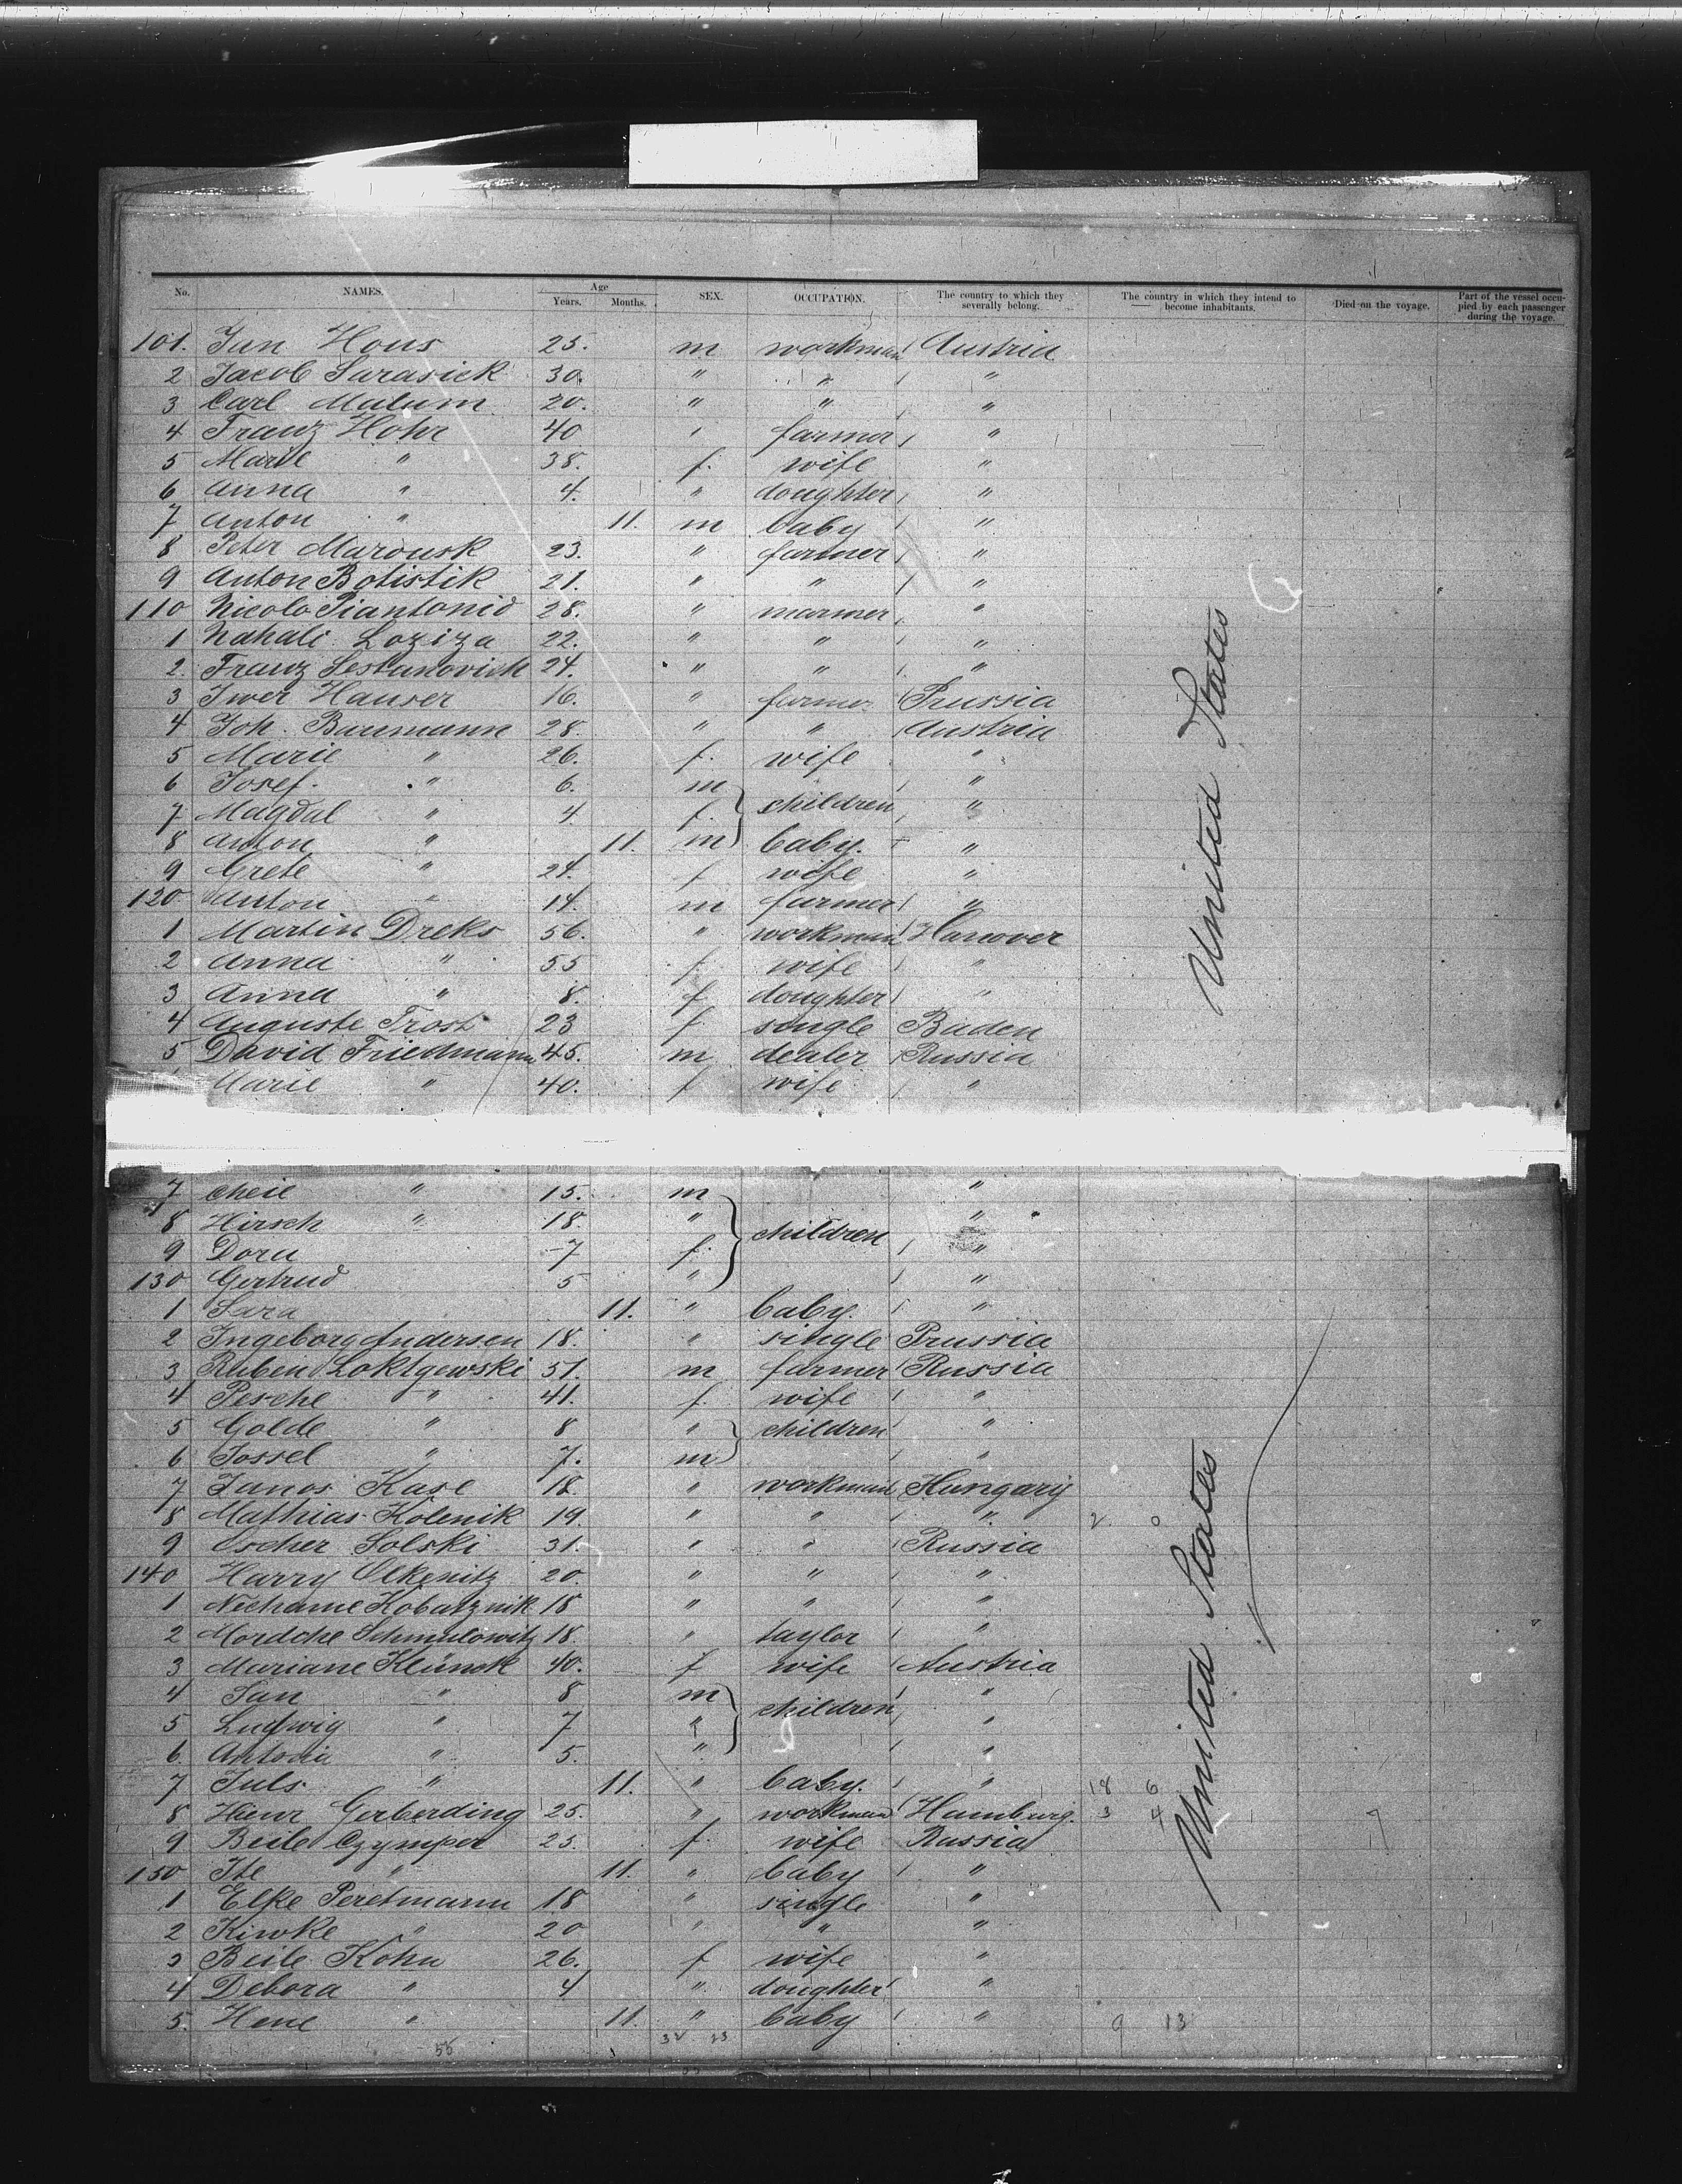 No. NAMES. Age Years. Months. SEX. OCCUPATION. The country to which they severally belong. The country in which they intend to become inhabitants. Died on the voyage. Part of the vessel occupied by each passenger during the voyage.
101. Jan Hous 25. m workman Austria
2 Jacob Sarasick 30. " " "
3 Carl Malum 20. " " "
4 Franz Hohr 40 " farmer "
5 Marie " 38. f. wife "
6 Anna " 4. " doughter "
7 Anton " 11. m baby "
8 Peter Marousk 23. " farmer "
9 Anton Botistik 21. " " "
110 Nicolo Piantonid 28. " marmer "
1 Nahali Loziza 22. " " "
2. Franz Sestanovich 24. " " "
3 Iwer Hauser 16. " farmer Prussia
4 Joh. Baumann 28. " " Austria
5 Marie " 26. f. wife "
6 Josef. " 6. m "
7 Magdal " 4. f. children "
8 Anton " 11. m baby. "
9 Grete " 24. f wife "
120 Anton " 14. m farmer "
1 Martin Dreks 56. " workman Hanover
2 Anna " 55 f. wife "
3 Anna " 8. f doughter "
4 Auguste Trost 23 f. single Baden
5 David Friedmann 45. m dealer Russia
Marie " 40. f wife "
United States
7 Cheie " 15. m "
8 Hirsch " 18. " children "
9 Dora 7 f. "
130 Gertrud 5 " "
1 Sara 11. " baby. "
2 Ingeborg Andersen 18. " single Prussia
3 Ruben Loktgewski 51. m farmer Russia
4 Pesche " 41. f. wife "
5 Golde " 8 " children "
6 Jossel " 7. m "
7 Janos Kase 18. " workman Hungary
8 Mathias Kolenik 19. " " " 2 0
9 Oscher Solski 31. " " Russia
140 Harry Olkenitz 20. " " "
1 Nechame Kobatznik 18 " " "
2 Mordche Schmulowitz 18. " taylor "
3 Mariane Klünok 40. f wife Austria
4 Jan " 8 m "
5 Ludwig " 7 " children "
6. Antonia " 5. " "
7 Juls " 11. " baby. " 18 6
8 Hienr Gerberding 25. " workman Hamburg. 3 4
9 Beile Czymper 25. f. wife Russia
150 Ite " 11. " baby "
1 Elke Peretmann 18 " single "
2 Kiwke " 20 " " "
3 Beile Kohn 26. f wife "
4 Debora " 4 " doughter "
5. Hene " 11. " baby " 9 13
55 32 23
United States